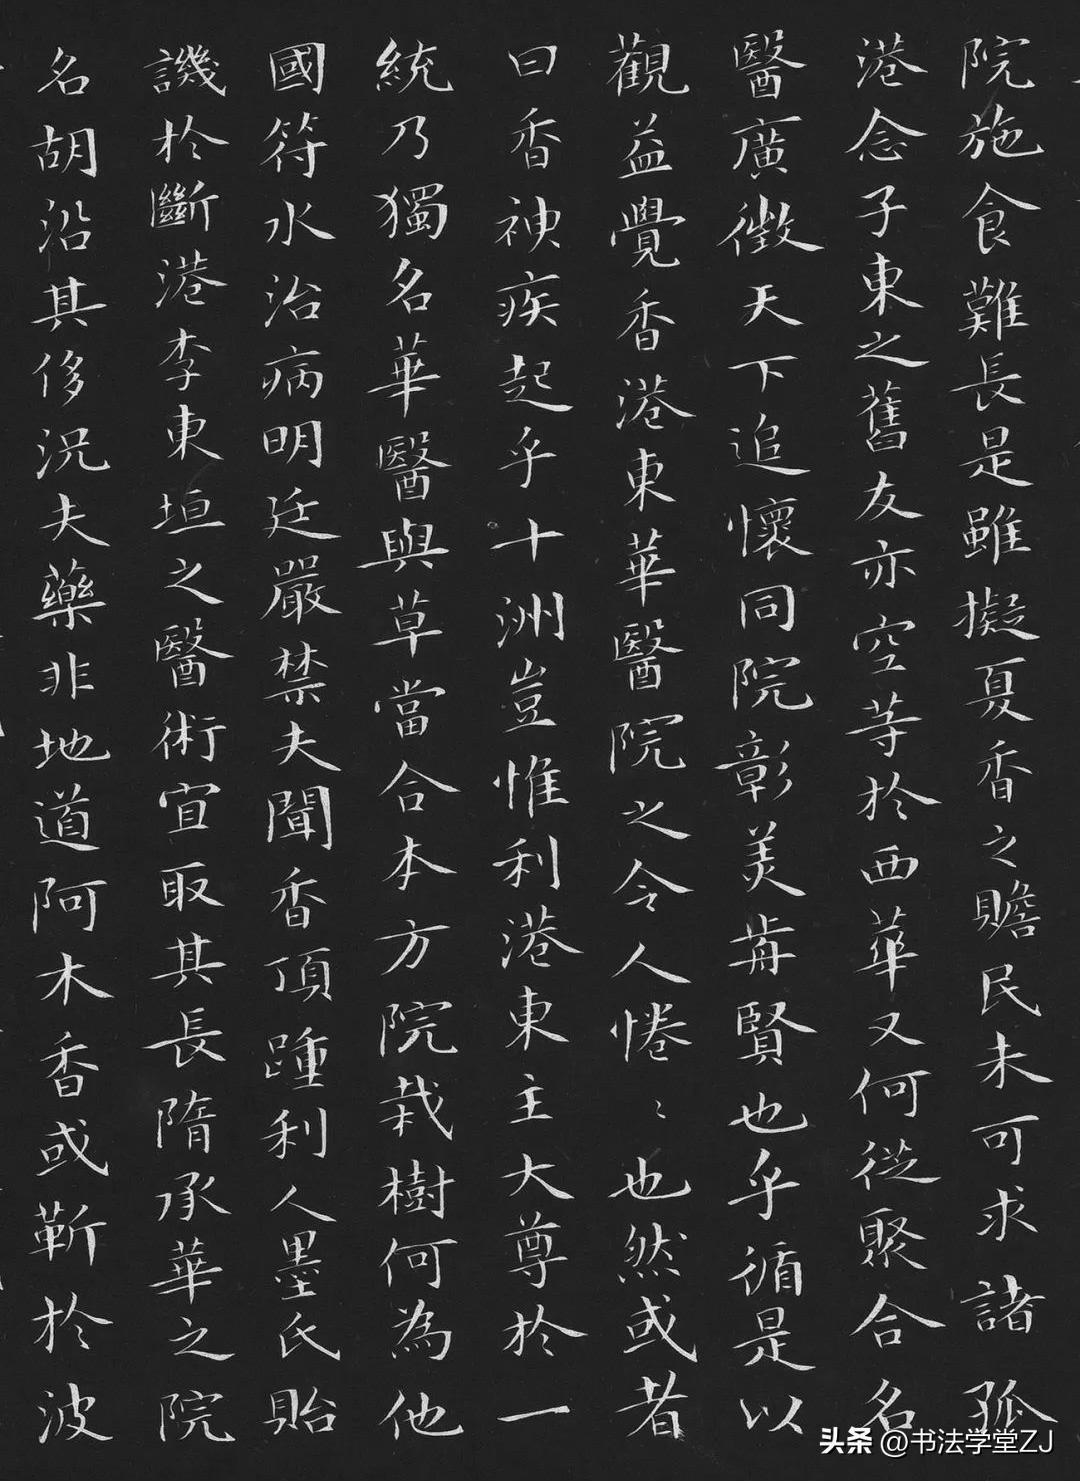 院施食難長是雖擬夏香之贍民未可求諸孤
港念子東之舊友亦空等於西華又何從聚合名
醫廣徵天下追懷同院彰美毋賢也乎循是以
觀益覺香港東華醫院之令人惓〻也然或者
曰香神疾起乎十洲豈惟利港東主大尊於一
統乃獨名華醫與草當合本方院栽樹何為他
國符水治病明廷嚴禁夫聞香頂踵利人墨氏貽
譏於斷港李東垣之醫術宜取其長隋承華之院
名胡沿其侈況夫藥非地道阿木香或蘄於波
头条 @书法学堂ZJ